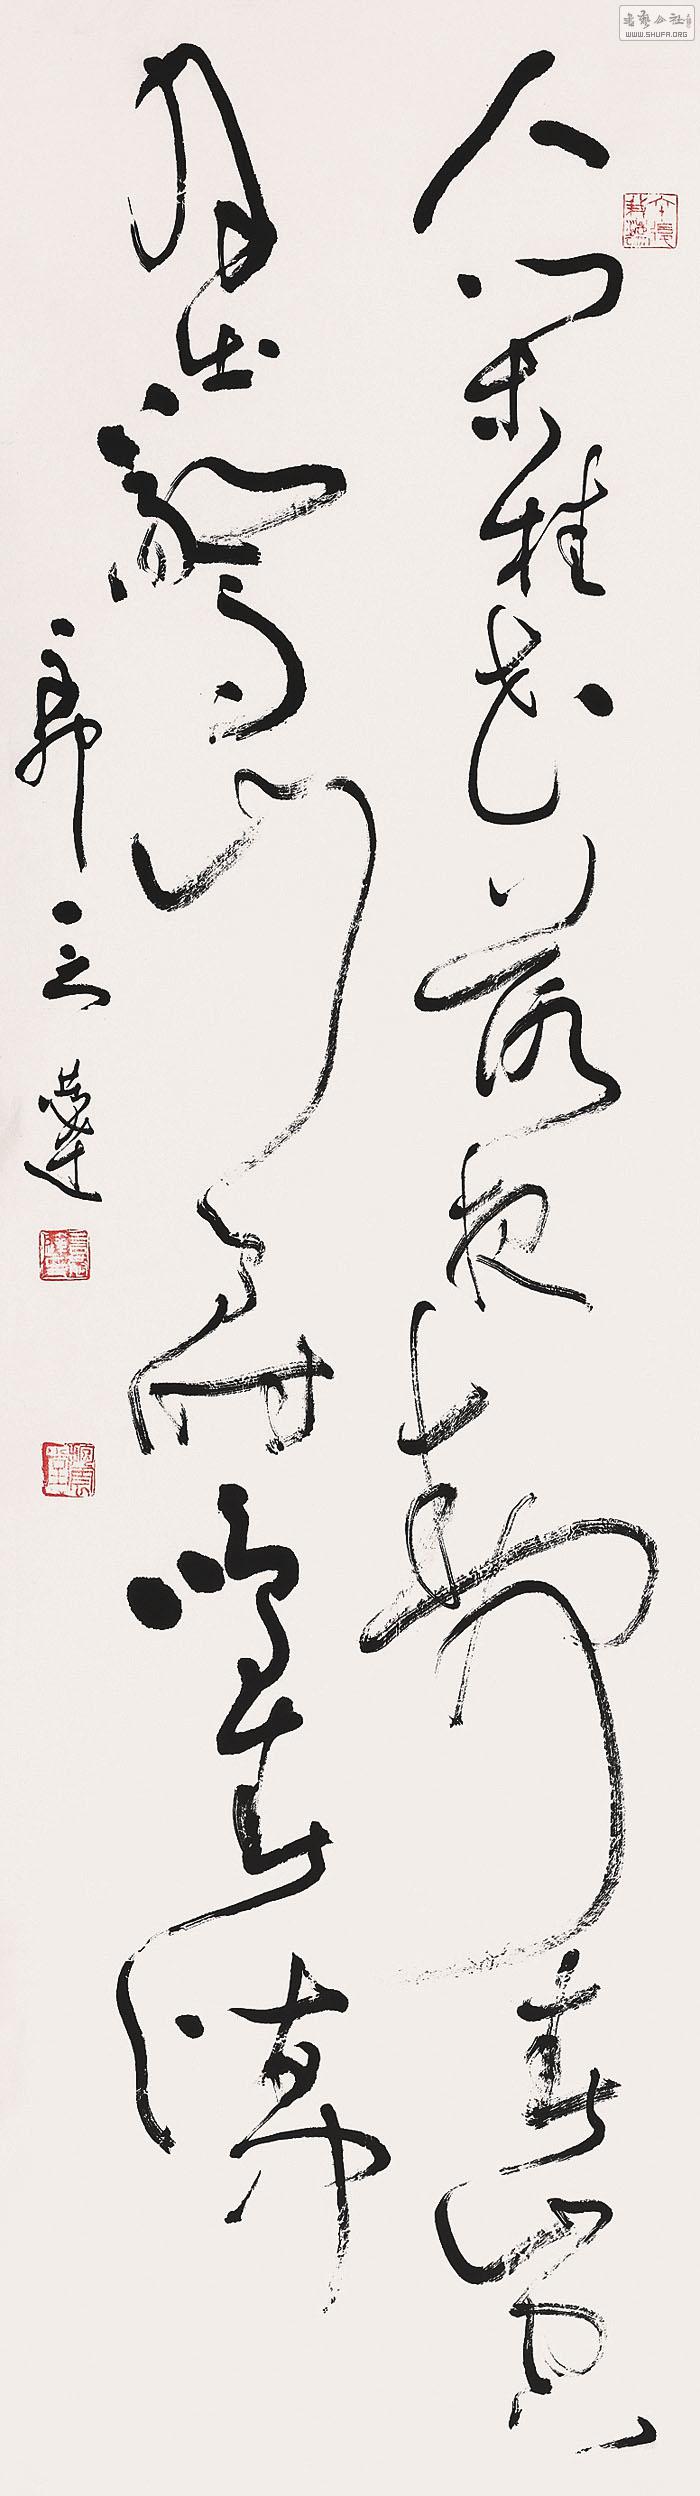 書藝公社
WWW.SHUFA.ORG
人閑桂花落夜静春山空
月出驚山鳥時鳴春澗中